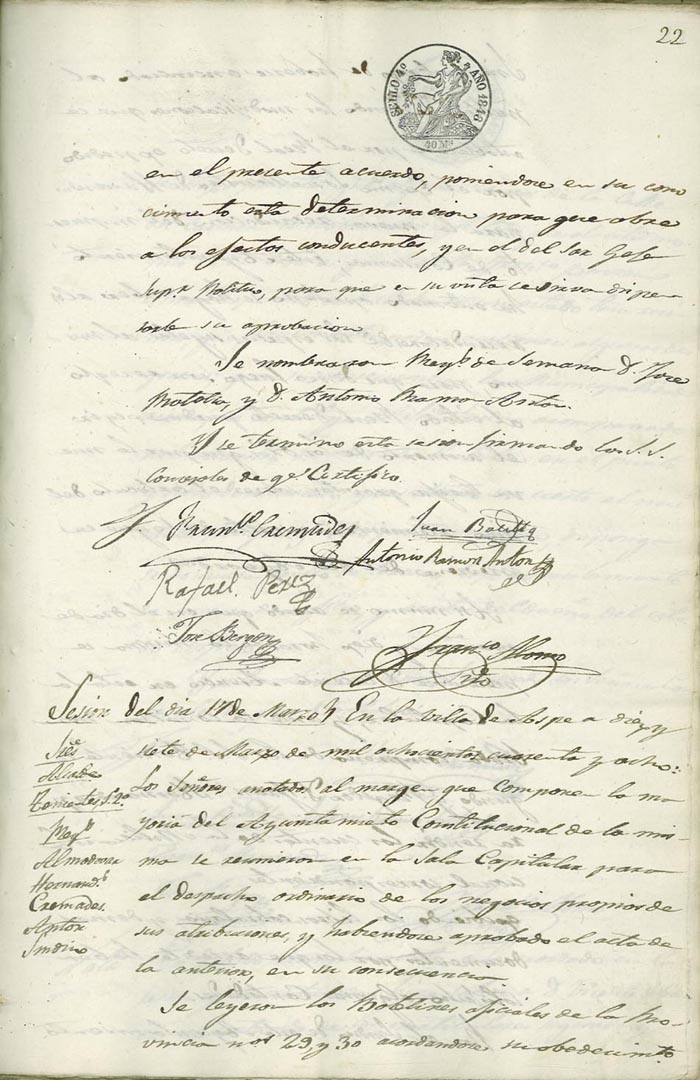 22
SELLO 4º AÑO 1848
40 Ms
en el presente acuerdo, poniendose en su cono
cimiento esta determinacion para que obre
a los efectos conducentes, y en el del Sor Gefe
Supr Politico, para que en su vista se sirva dispen
sarle su aprobacion
Se nombraron Regs de Semana D. Jose
Botella, y D. Antonio Ramon Anton.
Y se termino esta sesion firmando los S.S.
Concejales de qe Certifico.
Franco Cremades
Juan Botella
Antonio Ramon Anton
Rafael Perez
Jose Bergen
Franco Alonso
Srio
Sesion del dia 17 de Marzo
En la Villa de Aspe a diez y
siete de Marzo de mil ochocientos cuarenta y ocho:
Los Señores anotados al margen que componen la ma
yoria del Ayuntamiento Constitucional de la mis
ma se reunieron en la Sala Capitular para
el despacho ordinario de los negocios propios de
sus atribuciones, y habiendose aprobado el acta de
la anterior, en su consecuencia
Se leyeron los Boletines oficiales de la Pro
vincia nos 29, y 30 acordandose su obedecimto
Sres
Alcalde
Tenientes 1. 2º
Regs
Almodovar
Hernandz
Cremades
Anton
Sindico